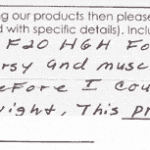 ng our products then please
d with specific details). Inclu
F20 HGH Fo
rsy and musc
efore I cou
vight, This pr